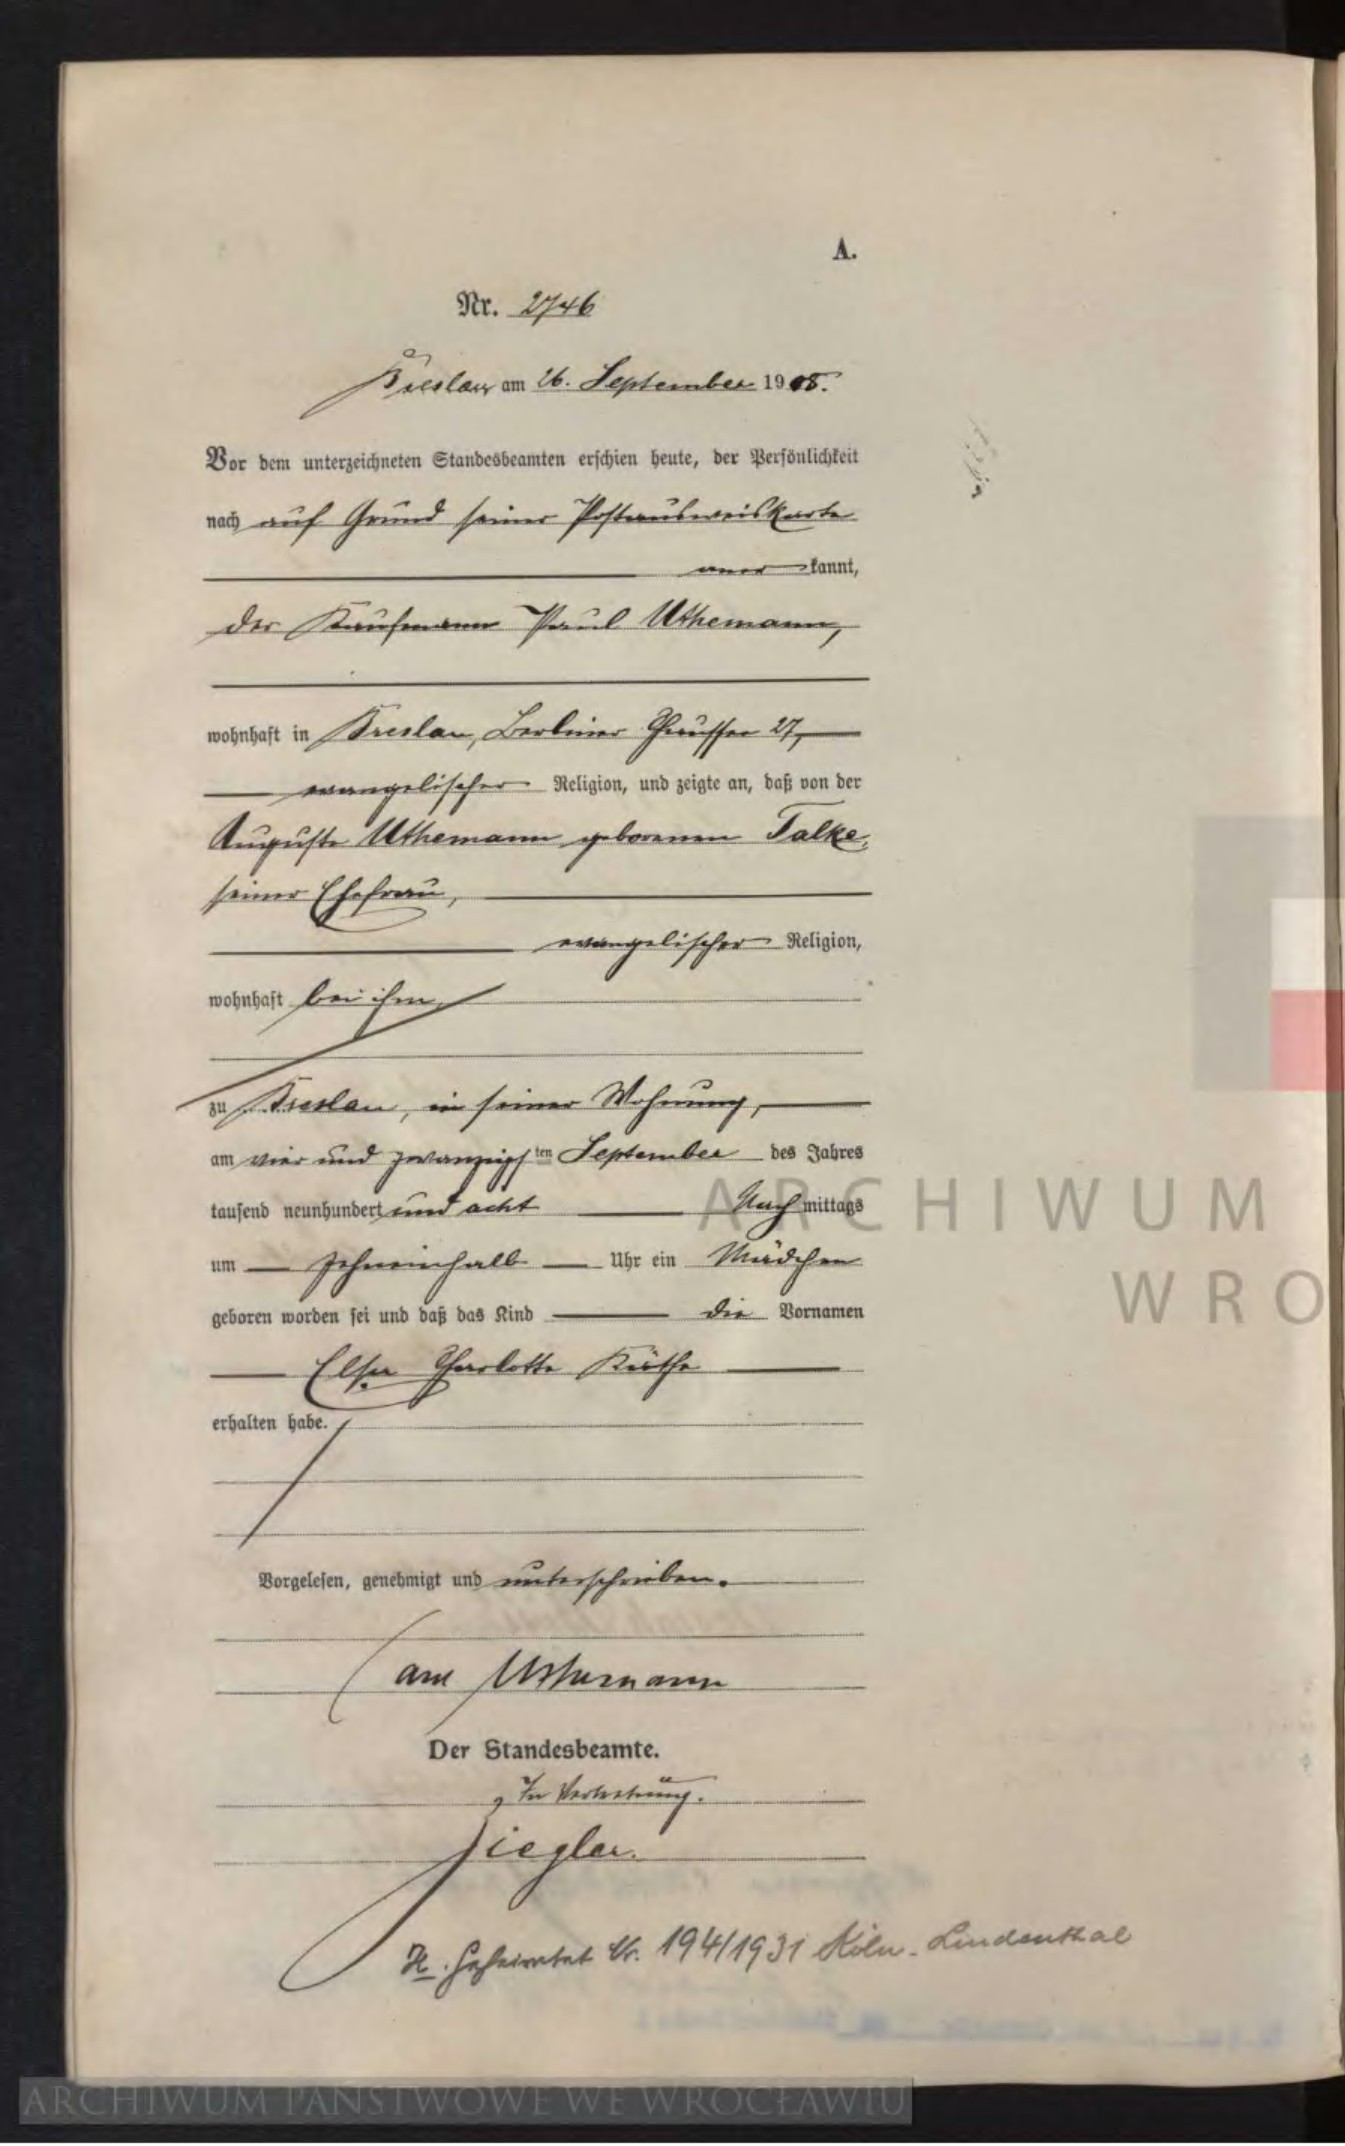 A.
Nr. 2746
Breslau am 26. September 1908.
Vor dem unterzeichneten Standesbeamten erschien heute, der Persönlichkeit
nach auf Grund seiner Postausweiskarte
aner kannt,
der Kaufmann Paul Uthemann,
wohnhaft in Breslau, Berliner Chaussee 27,
evangelischer Religion, und zeigte an, daß von der
Auguste Uthemann geborenen Talke,
seiner Ehefrau,
evangelischer Religion,
wohnhaft bei ihm
zu Breslau, in seiner Wohnung,
am vier und zwanzigs ten September des Jahres
tausend neunhundert und acht Nach mittags
um zehneinhalb Uhr ein Mädchen
geboren worden sei und daß das Kind die Vornamen
Elsa Charlotte Käthe
erhalten habe.
Vorgelesen, genehmigt und unterschrieben.
Uthemann
Der Standesbeamte.
In Vertretung.
Ziegler.
geheiratet Nr. 194/1931 Köln-Lindenthal
ARCHIWUM
WRO
ARCHIWUM PAŃSTWOWE WE WROCŁAWIU